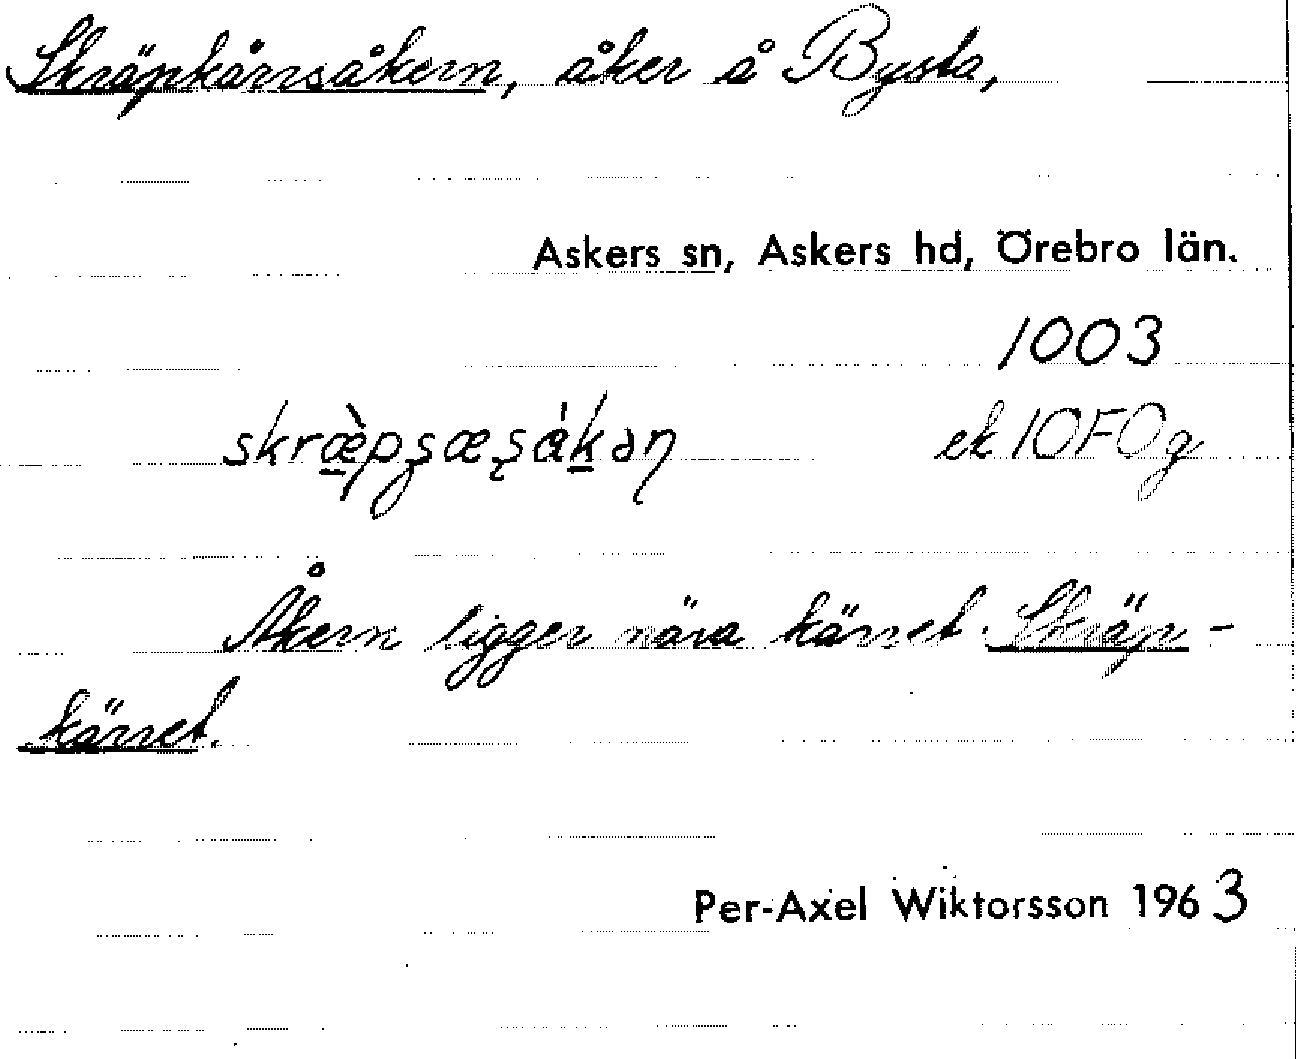 Skräpkärrsåkern, åker å Bysta,
Askers sn, Askers hd, Örebro län.
1003
skræ̀pʂæʂákən ek 10F0g
Åkern ligger nära kärret Skräp-
kärret.
Per-Axel Wiktorsson 1963